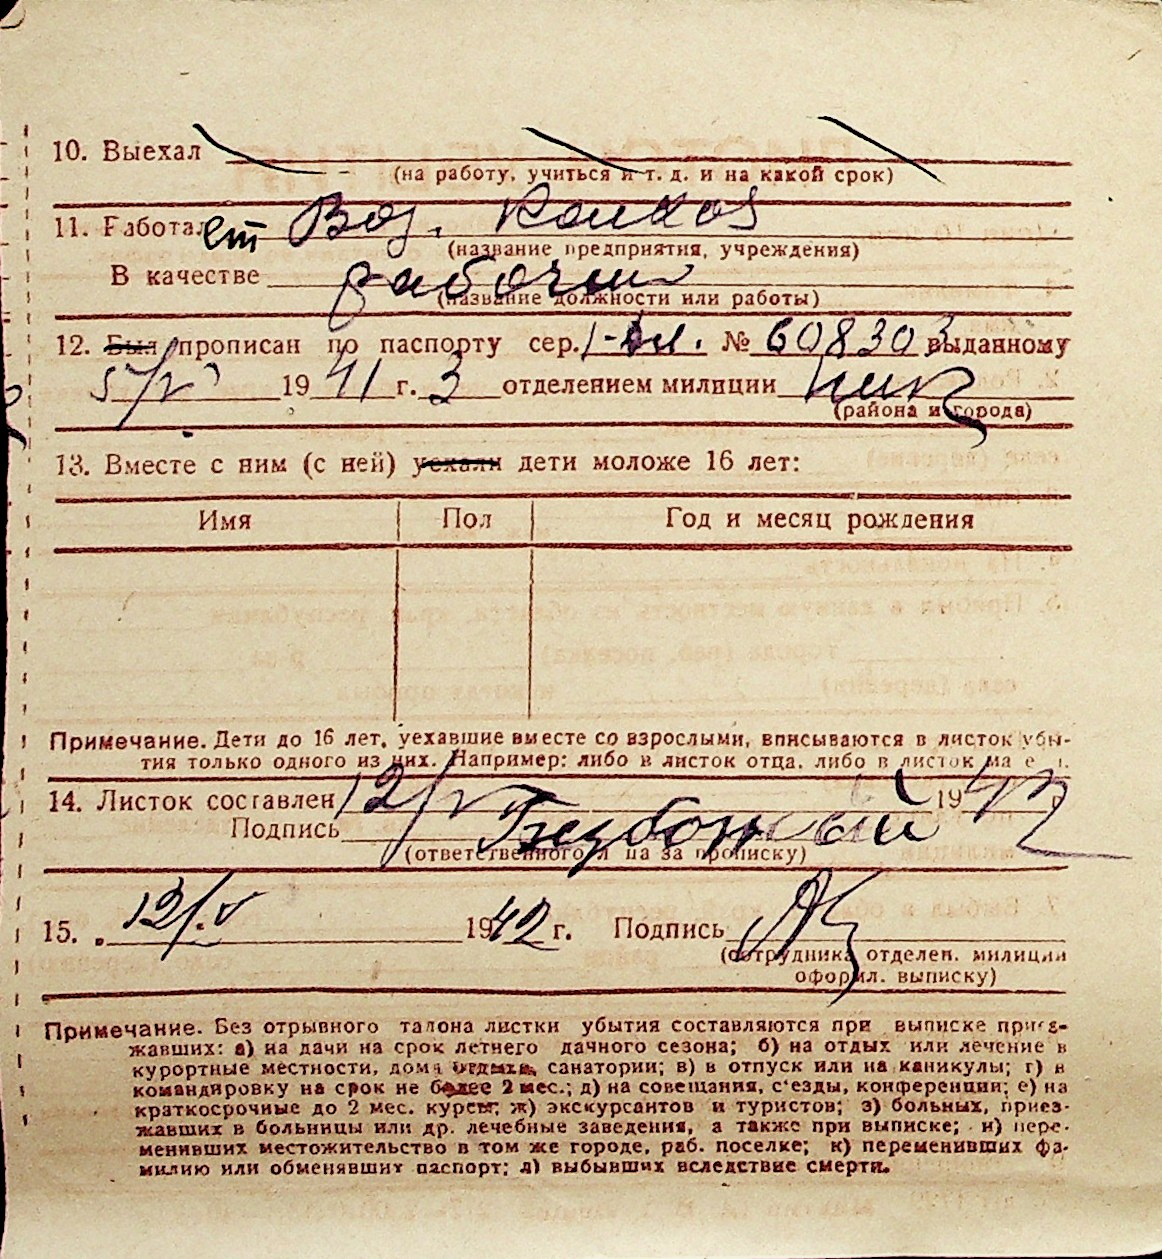 10. Выехал
(на работу, учиться и т. д. и на какой срок)
11. Работал
(название предприятия, учреждения)
В качестве рабочим
(название должности или работы)
12. Был прописан по паспорту сер. № 608303 выданному
5/V 1941 г. 3 отделением милиции
(района и города)
13. Вместе с ним (с ней) уехали дети моложе 16 лет:
Имя Пол Год и месяц рождения
Примечание. Дети до 16 лет, уехавшие вместе со взрослыми, вписываются в листок убы-
тия только одного из них. Например: либо в листок отца, либо в листок ма е и.
14. Листок составлен 12/V 1942
Подпись
(ответственного л ца за прописку)
15. 12/V 1942 г. Подпись
(сотрудника отделен. милиции
оформ. выписку)
Примечание. Без отрывного талона листки убытия составляются при выписке приез-
жавших: а) на дачи на срок летнего дачного сезона; б) на отдых или лечение в
курортные местности, дома отдыха, санатории; в) в отпуск или на каникулы; г) в
командировку на срок не более 2 мес.; д) на совещания, с'езды, конференции; е) на
краткосрочные до 2 мес. курсы; ж) экскурсантов и туристов; з) больных, приез-
жавших в больницы или др. лечебные заведения, а также при выписке; и) пере-
менивших местожительство в том же городе, раб. поселке; к) переменивших фа-
милию или обменявших паспорт; л) выбывших вследствие смерти.